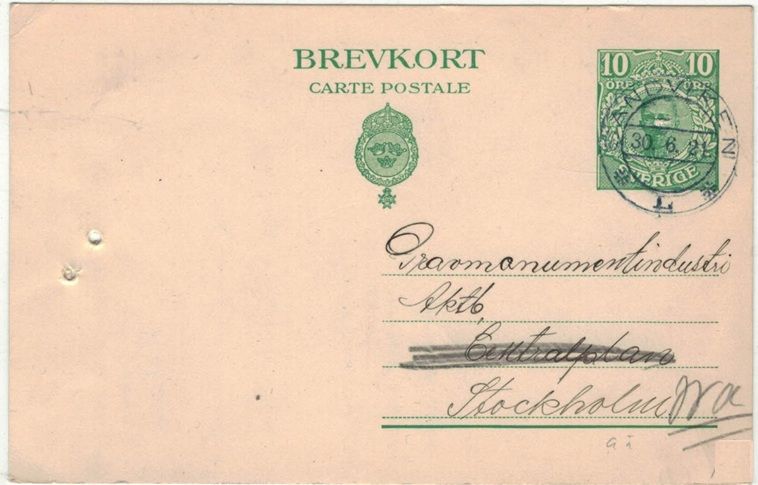 BREVKORT
CARTE POSTALE
10 10
ÖRE ÖRE
SVERIGE
30. 6. 21
L
Gravmonumentindustri
Aktb.
Centralplan
Stockholm